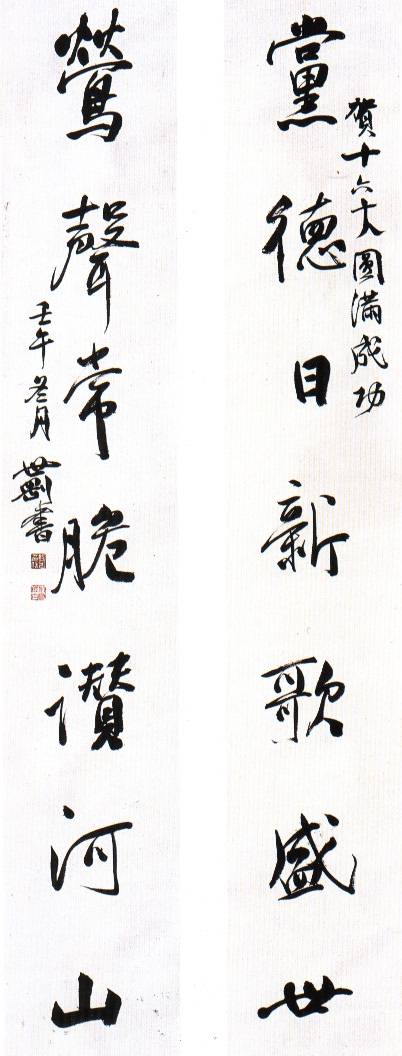 賀十六大圓滿成功
黨德日新歌盛世
鶯聲常脆讃河山
壬午冬月
書